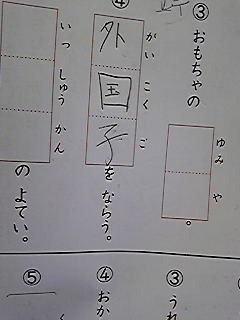 ③ おもちゃの
ゆみ や
。
④
がい こく ご
外国子
を ならう。
いっ しゅう かん
の よてい。
③ うれ
④ おか
⑤
く